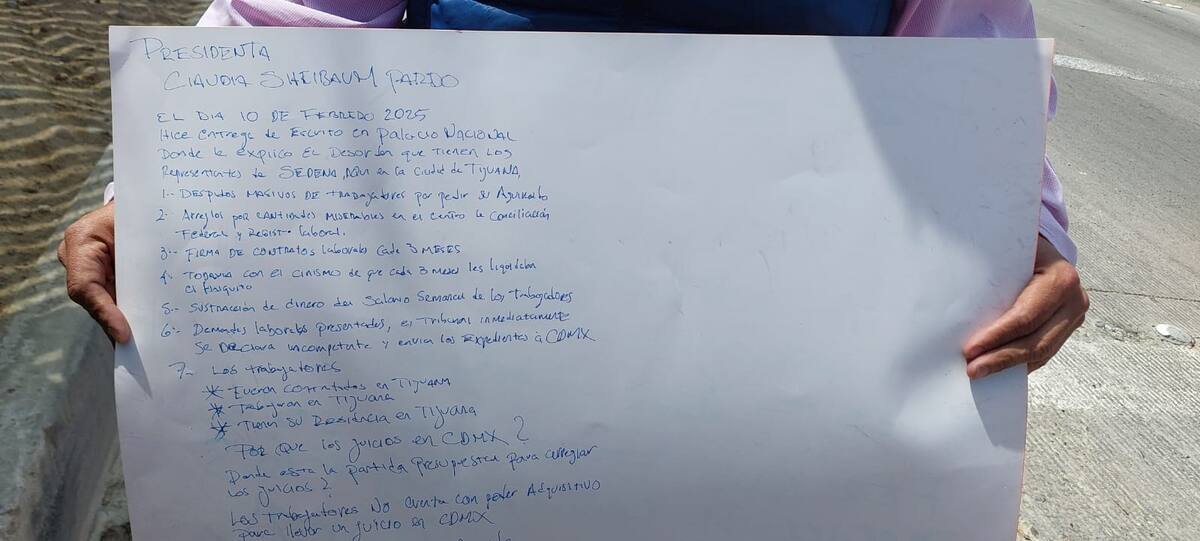 PRESIDENTA
CLAUDIA SHEIBAUM PARDO
EL DIA 10 DE FEBRERO 2025
Hice entrega de Escrito en Palacio NACIONAL
Donde le explico EL Desorden que tienen los
Representantes de SEDENA, AQUI en la Ciudad de TIJUANA,
1.- DESPIDOS MASIVOS DE TRABAJADORES por pedir su Aguinaldo
2.- Arreglos por CANTIDADES MISERABLES en el CENTRO de CONCILIACIÓN
Federal y REGISTRO laboral.
3.- FIRMA DE CONTRATOS laborales Cada 3 MESES
4.- TODAVIA con el CINISMO de que cada 3 meses les liquidaban
el finiquito
5.- SUSTRACCIÓN de dinero del Salario Semanal de los Trabajadores
6.- Demandas laborales presentadas, el Tribunal inmediatamente
SE DECLARA incompetente y envian los Expedientes a CDMX
7.- Los trabajadores
* Fueron contratados en TIJUANA
* Trabajaron en TIJUANA
* Tienen su Residencia en TIJUANA
POR QUE los juicios en CDMX?
Donde esta la partida presupuestal para arreglar
los juicios?
Los trabajadores No cuenta con poder Adquisitivo
para llevar un juicio en CDMX